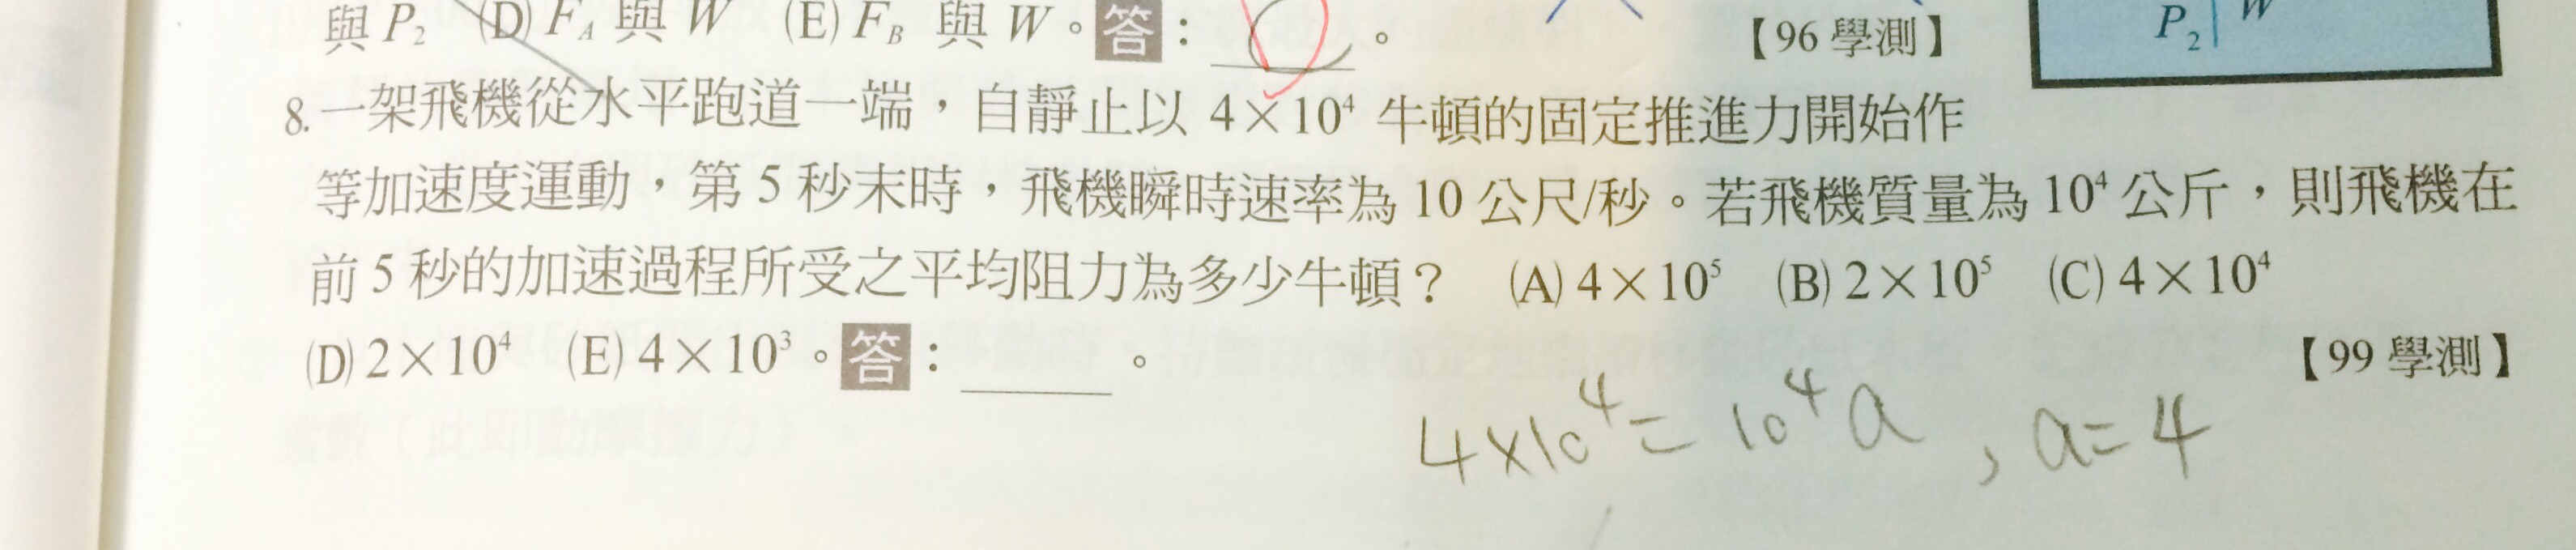 與 P₂ (D) F_A 與 W (E) F_B 與 W。答：＿＿＿。 【96 學測】
P₂ W
8. 一架飛機從水平跑道一端，自靜止以 4×10⁴ 牛頓的固定推進力開始作
等加速度運動，第 5 秒末時，飛機瞬時速率為 10 公尺/秒。若飛機質量為 10⁴ 公斤，則飛機在
前 5 秒的加速過程所受之平均阻力為多少牛頓？ (A) 4×10⁵ (B) 2×10⁵ (C) 4×10⁴
(D) 2×10⁴ (E) 4×10³。答：＿＿＿。 【99 學測】
4×10⁴=10⁴a , a=4